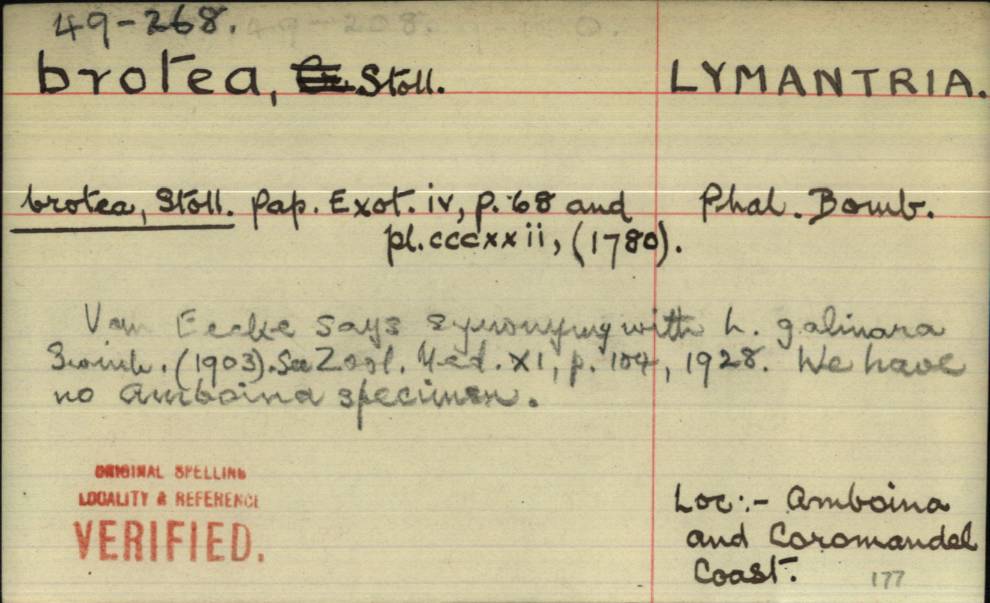 49-268.
brotea, Stoll. LYMANTRIA.
brotea, Stoll. Pap. Exot. iv, p. 68 and Phal. Bomb.
pl. cccxxii, (1780).
Van Eecke says synonymy with L. galinara
Swinh. (1903). See Zool. Med. XI, p. 104, 1928. We have
no Amboina specimen.
ORIGINAL SPELLING
LOCALITY & REFERENCE
VERIFIED.
Loc:- Amboina
and Coromandel
Coast.
177